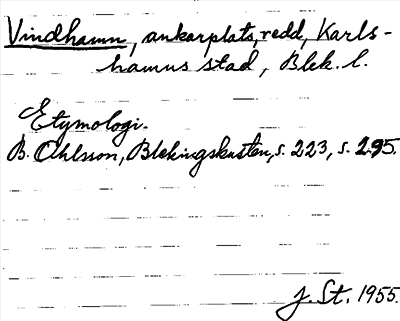 Vindhamn, ankarplats, redd, Karls-
hamns stad, Blek. l.
Etymologi.
B. Ohlsson, Blekingskusten, s. 223, s. 295.
J. St. 1955.